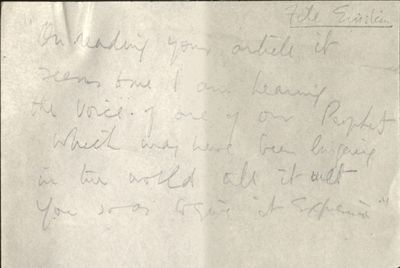 File Einstein
"On reading your article it
seems to me I am hearing
the voice of one of our Prophets
which may have been lingering
in the world till it met
you so as to give it Expression"